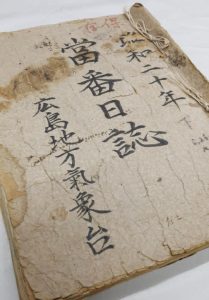 昭和二十年
當番日誌
広島地方氣象台